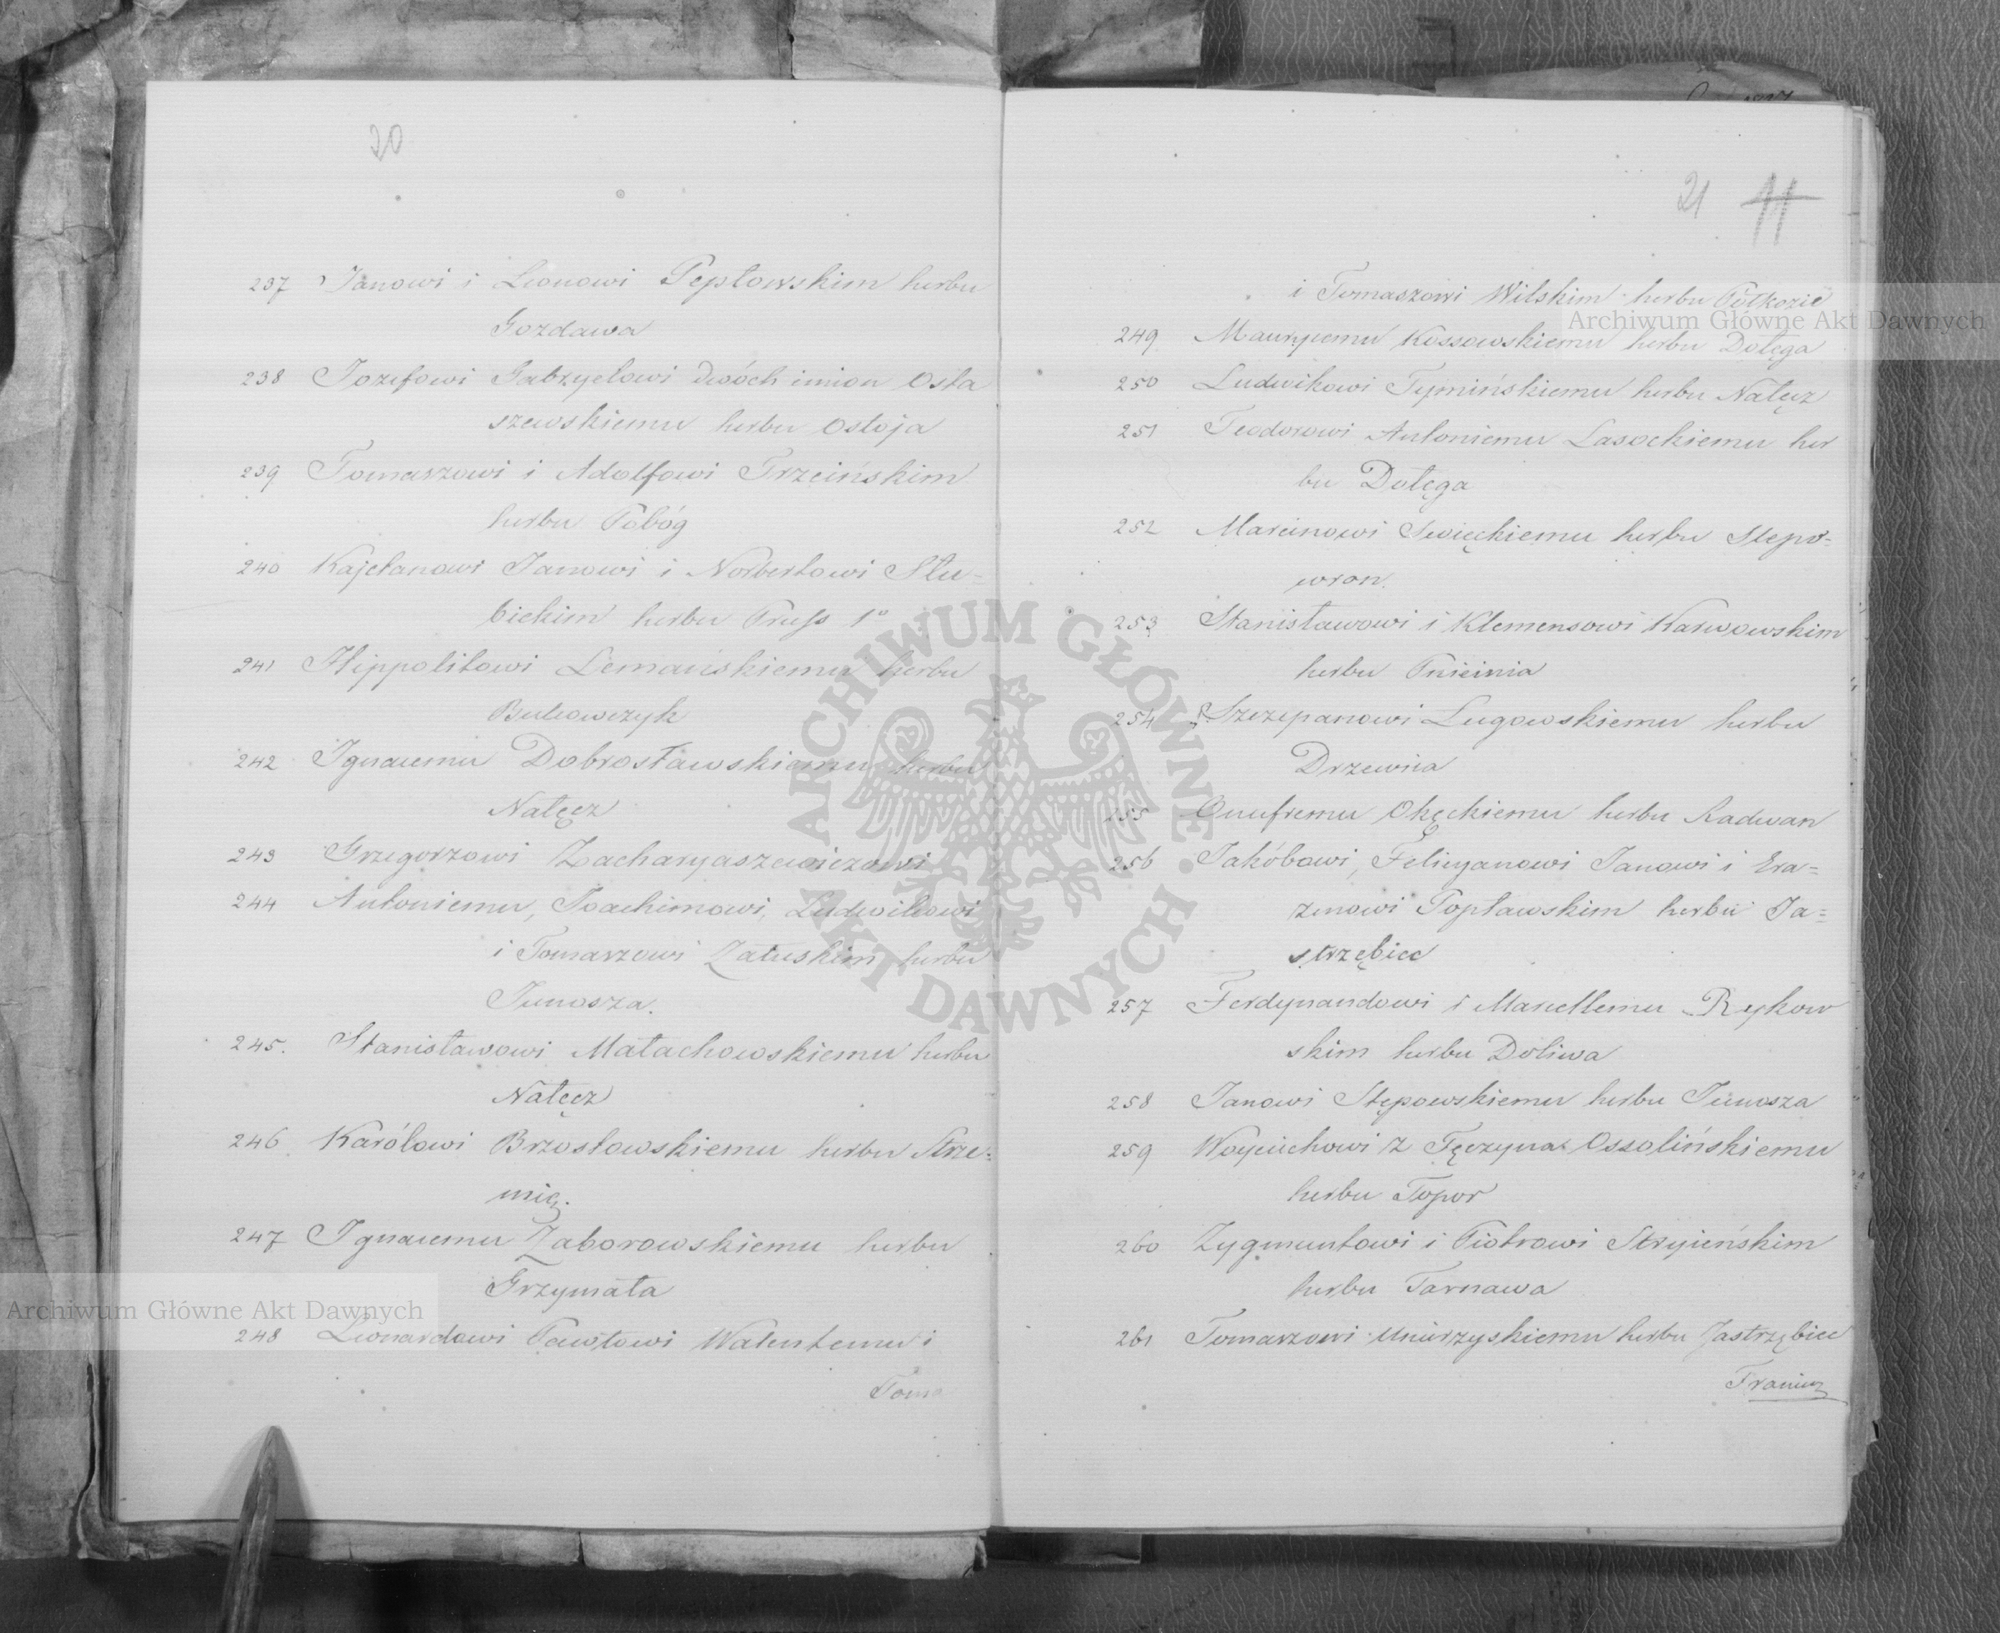 20
237 Janowi i Leonowi Pepłowskim herbu
Gozdawa
238 Jozefowi Gabryelowi dwóch imion Osta
szewskiemu herbu Ostoja
239 Tomaszowi i Adolfowi Trzcińskim
herbu Pobóg
240 Kajetanowi Janowi i Norbertowi Słu-
bickim herbu Pruss 1º
241 Hippolitowi Lemańskiemu herbu
Bukowczyk
242 Ignacemu Dobrosławskiemu herbu
Nałęcz
243 Grzegorzowi Zacharyaszewiczowi
244 Antoniemu, Joachimowi, Ludwikowi
i Tomaszowi Załuskim herbu
Junosza.
245. Stanisławowi Małachowskiemu herbu
Nałęcz
246 Karólowi Brzostowskiemu herbu Strze-
mię.
247 Ignacemu Zaborowskiemu herbu
Grzymała
248 Leonardowi Pawłowi Walentemu i
Toma
21 11
i Tomaszowi Wilskim herbu Półkozic
249 Maurycemu Kossowskiemu herbu Dołęga
250 Ludwikowi Tymińskiemu herbu Nałęcz
251 Teodorowi Antoniemu Lasockiemu her
bu Dołęga
252 Marcinowi Swięckiemu herbu Slepo=
wron.
253 Stanisławowi i Klemensowi Karwowskim
herbu Pnieinia
254 Szczepanowi Lugowskiemu herbu
Drzewica
255 Onufremu Okęckiemu herbu Radwan
256 Jakóbowi, Felicyanowi Janowi i Era=
zmowi Popławskim herbu Ja=
strzębiec
257 Ferdynandowi i Marcellemu Rykow
skim herbu Doliwa
258 Janowi Stępowskiemu herbu Junosza
259 Woyciechowi z Tęczyna Ossolińskiemu
herbu Topor
260 Zygmuntowi i Piotrowi Stryieńskim
herbu Tarnawa
261 Tomaszowi Unierzyskiemu herbu Jastrzębiec
Francisz
Archiwum Główne Akt Dawnych
Archiwum Główne Akt Dawnych
ARCHIWUM GŁÓWNE AKT DAWNYCH